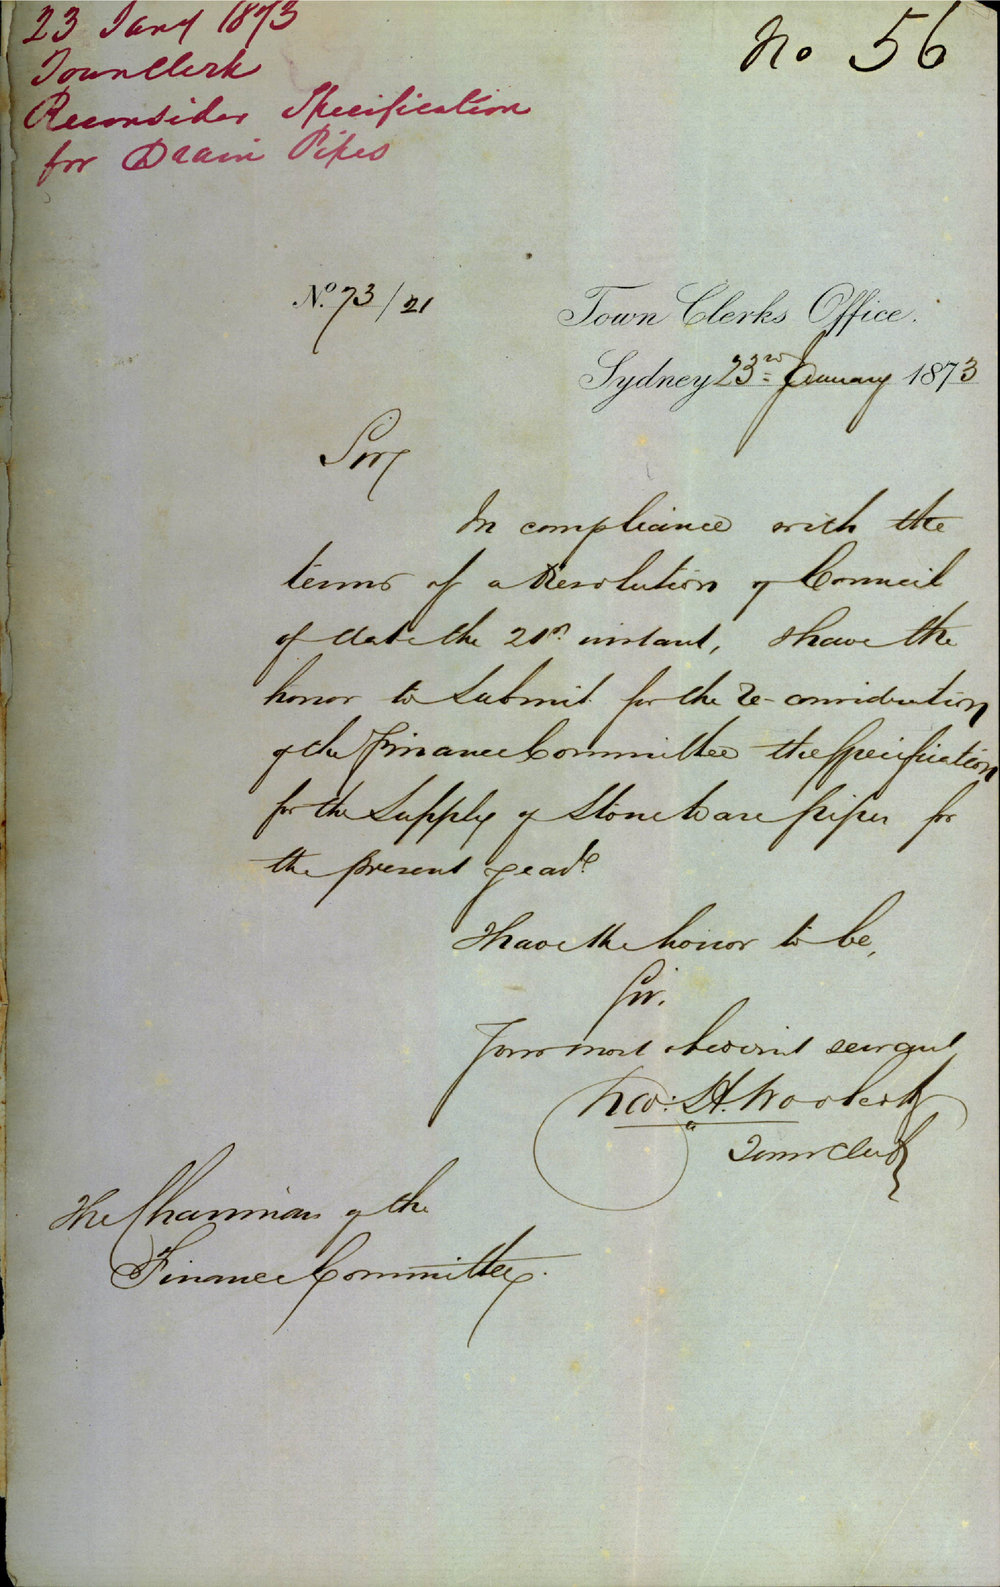 23 Jany 1873
Town Clerk
Reconsider Specification
for Drain Pipes
No 56
No. 73/21
Town Clerks Office.
Sydney 23rd January 1873
Sir,
In compliance with the
terms of a Resolution of Council
of date the 21st instant, I have the
honor to submit for the re-consideration
of the Finance Committee the Specification
for the Supply of Stoneware pipes for
the present year.
I have the honor to be,
Sir.
Your most obedient servant
Chas: H. Woolcott
Town Clerk
The Chairman of the
Finance Committee.